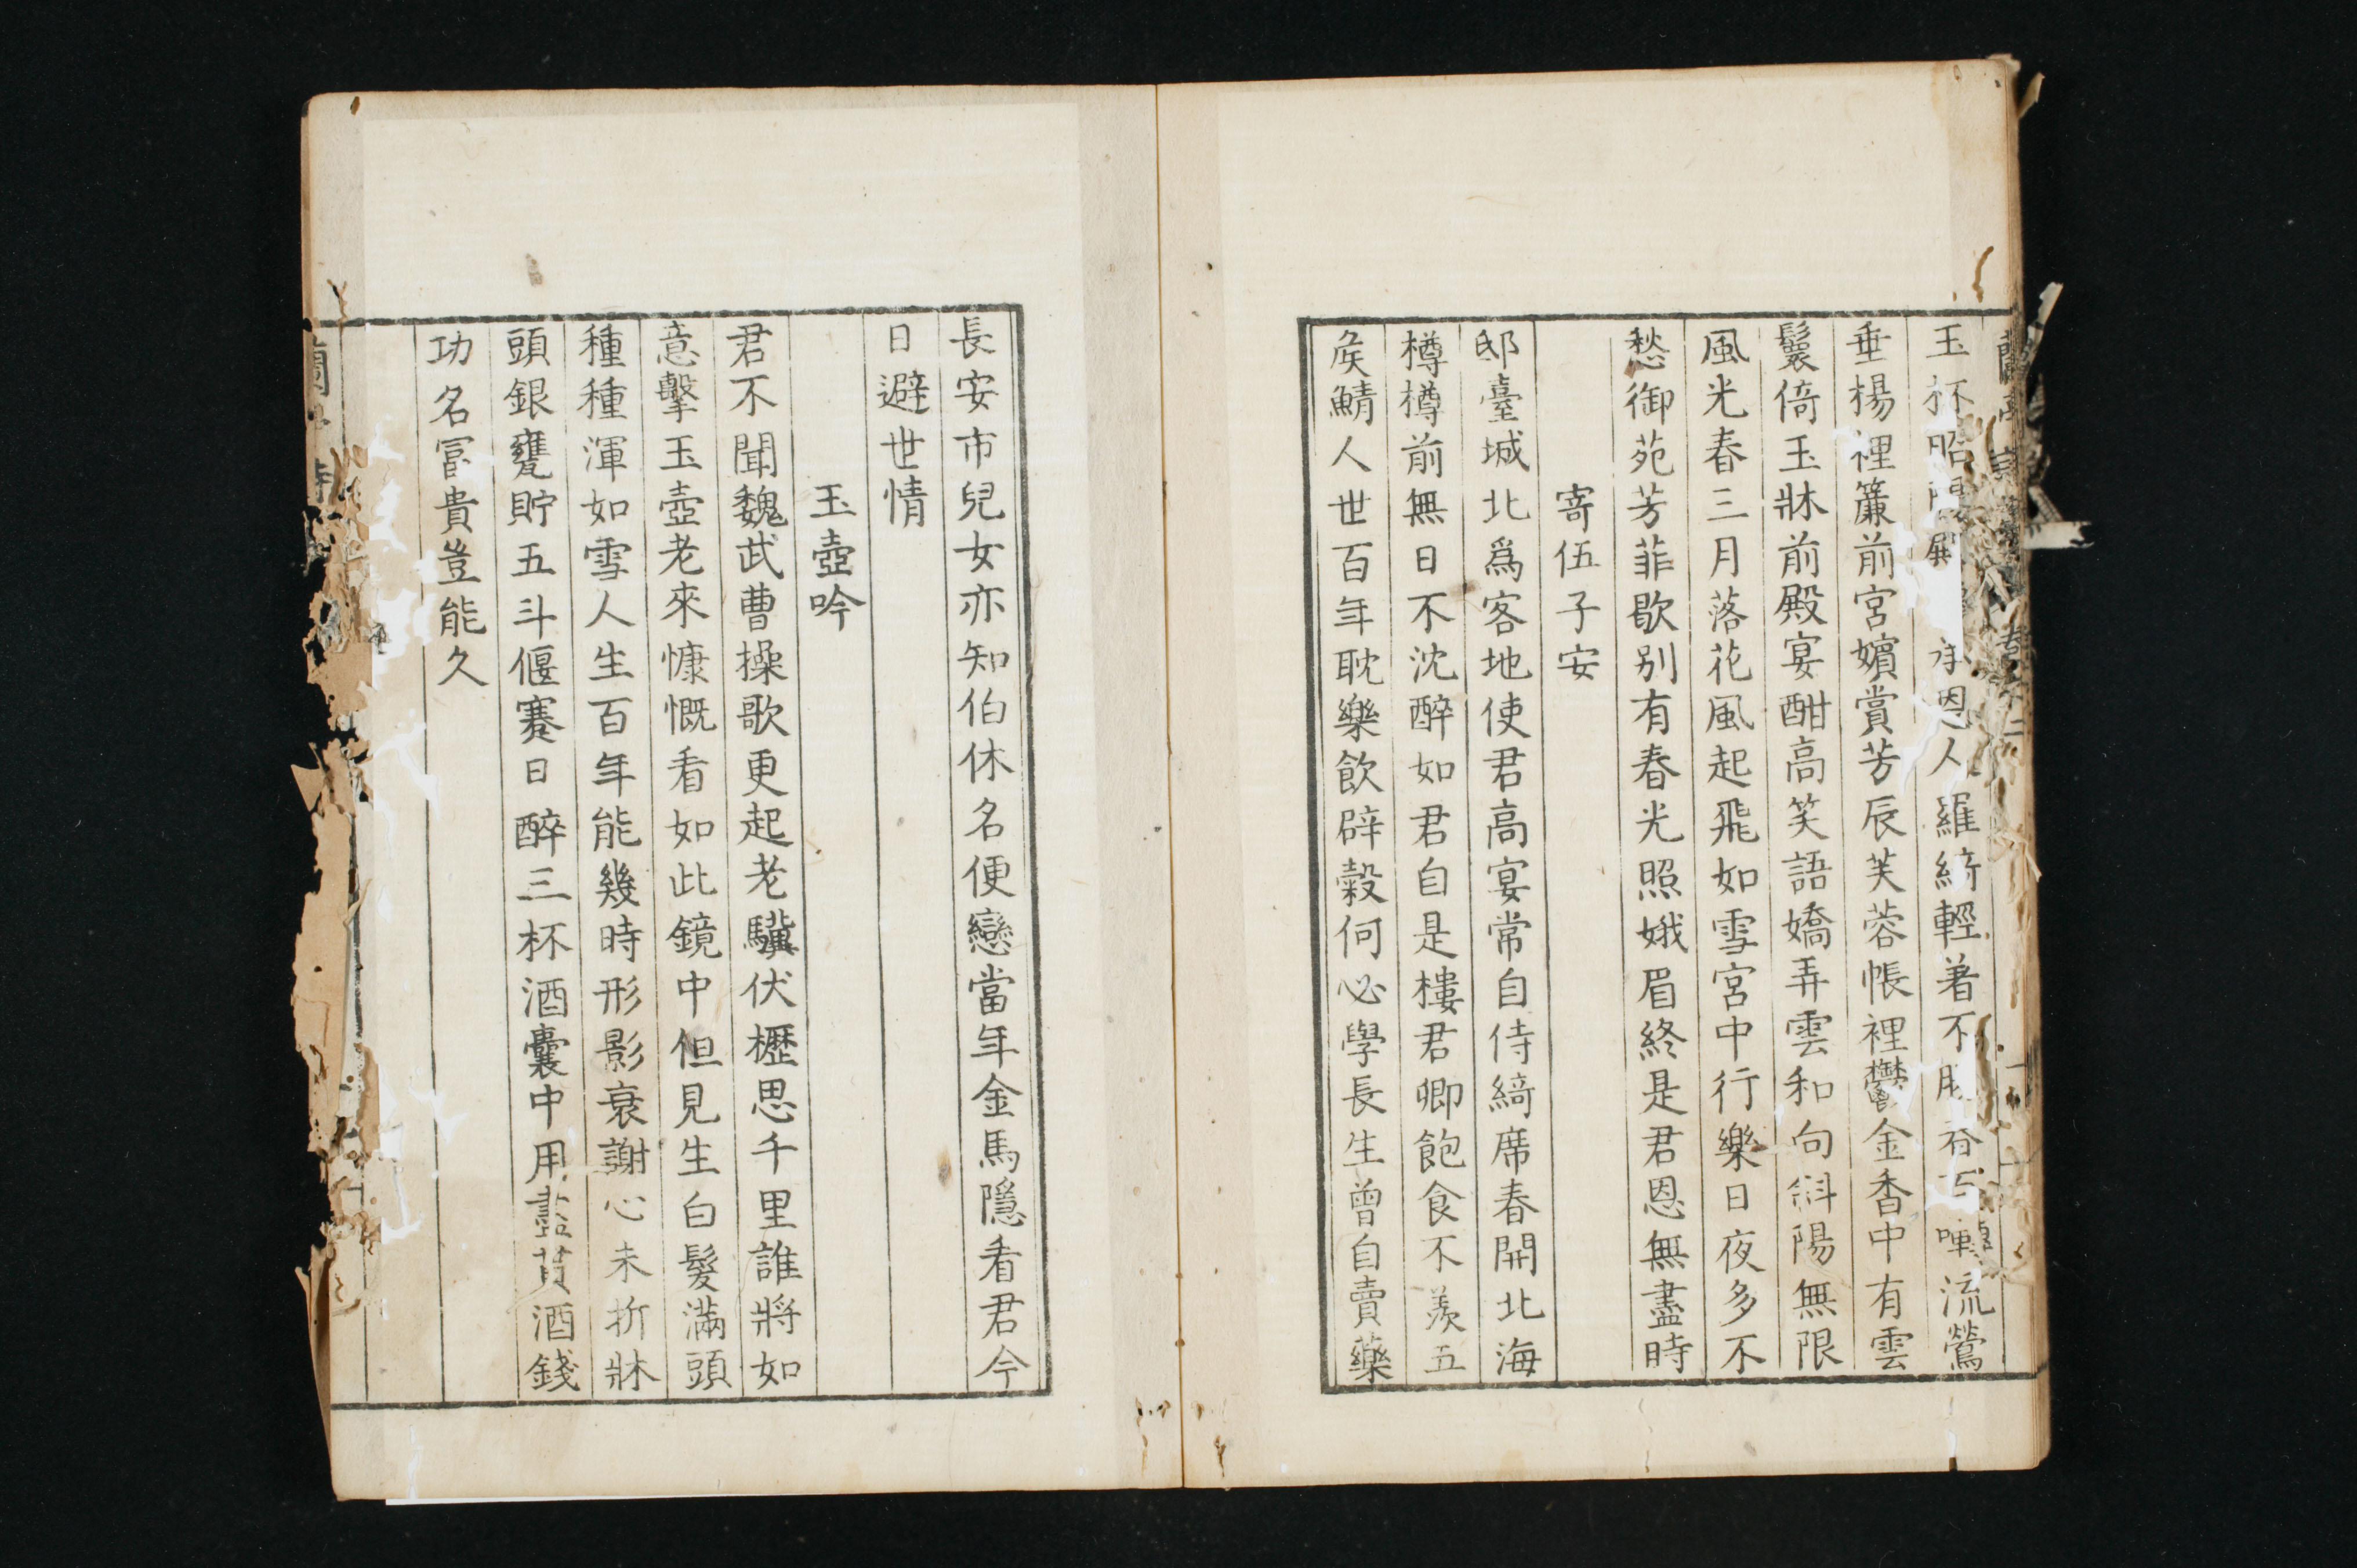 玉杯昭陽殿承恩人羅綺輕著不流鶯
垂楊裡簾前宮嬪賞芳辰芙蓉帳裡鬱金香中有雲
鬟倚玉牀前殿宴酣高笑語嬌弄雲和向斜陽無限
風光春三月落花風起飛如雪宮中行樂日夜多不
愁御苑芳菲歇別有春光照娥眉終是君恩無盡時
寄伍子安
邸臺城北爲客地使君高宴常自侍綺席春開北海
樽樽前無日不沈醉如君自是樓君卿飽食不羨五
矦鯖人世百年耽樂飲辟穀何必學長生曾自賣藥
長安市兒女亦知伯休名便戀當年金馬隱看君今
日避世情
玉壺吟
君不聞魏武曹操歌更起老驥伏櫪思千里誰將如
意擊玉壺老來慷慨看如此鏡中但見生白髮滿頭
種種渾如雪人生百年能幾時形影衰謝心未折牀
頭銀甕貯五斗偃蹇日醉三杯酒囊中用盡貰酒錢
功名冨貴豈能久